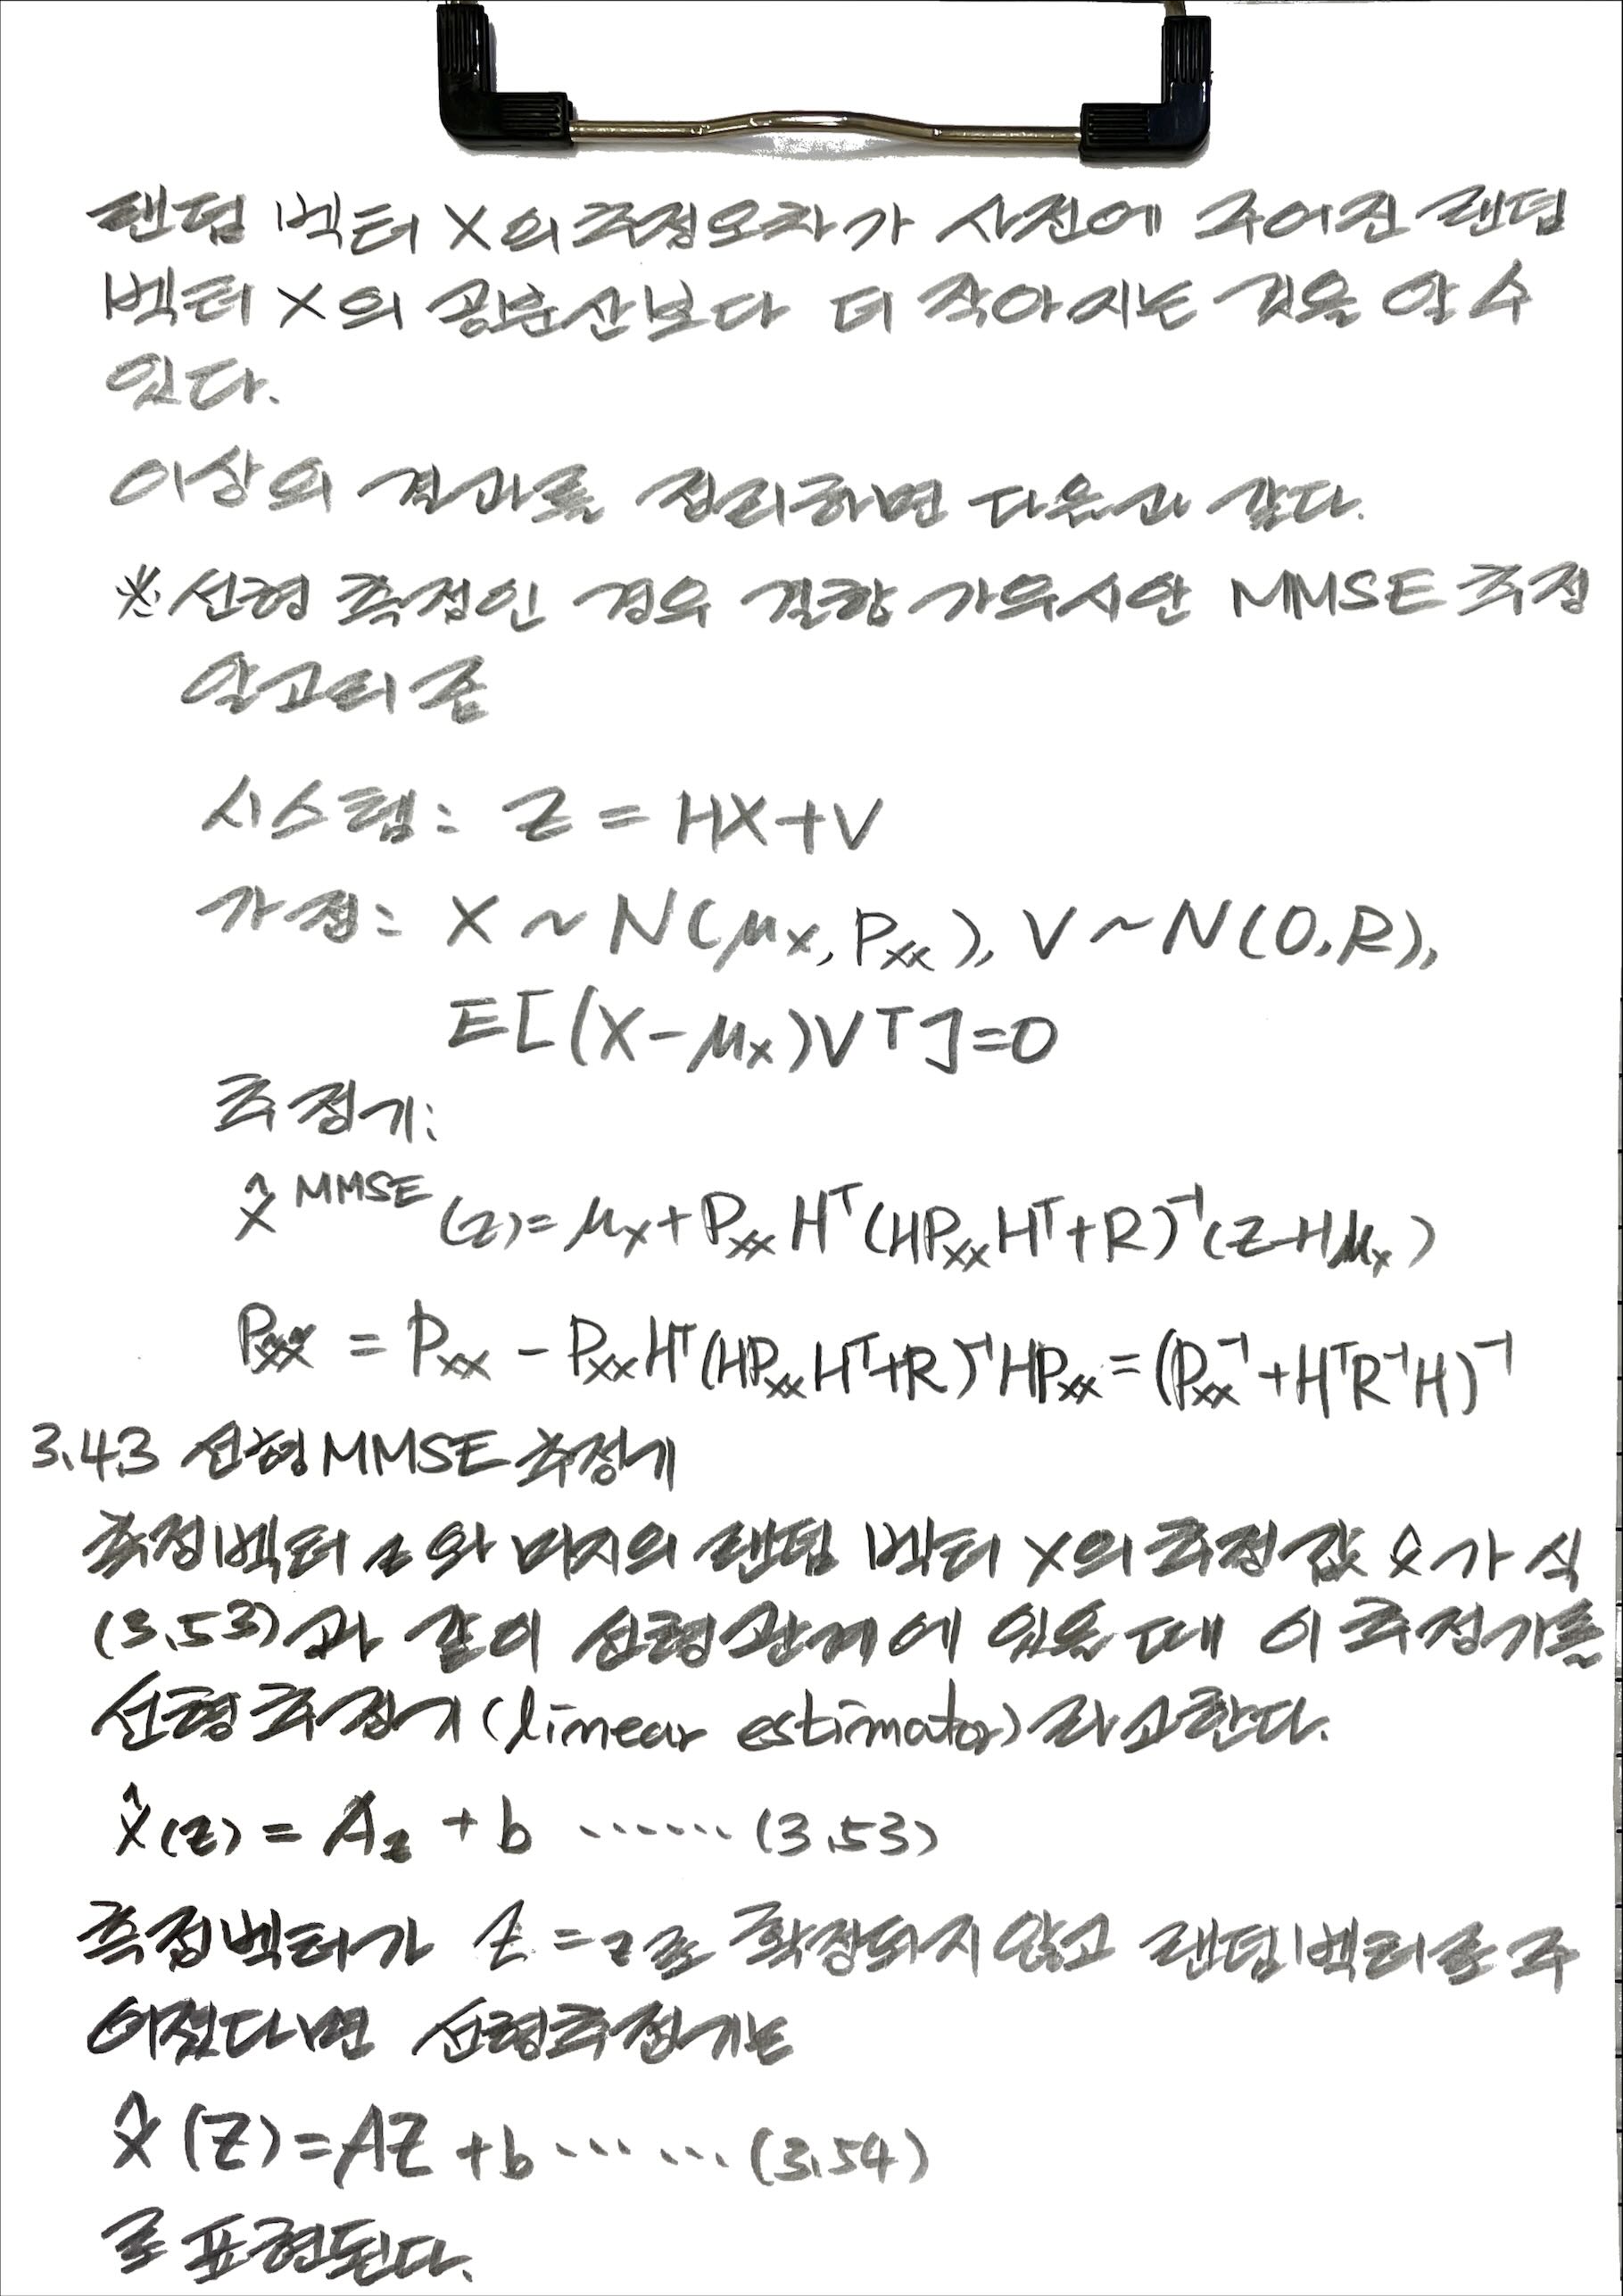 랜덤 벡터 X의 추정오차가 사전에 주어진 랜덤
벡터 X의 공분산보다 더 작아지는 것을 알 수
있다.
이상의 결과를 정리하면 다음과 같다.
※ 선형 측정인 경우 결합 가우시안 MMSE 추정
알고리즘
시스템: Z = HX+V
가정: X ~ N(μx, Pxx), V ~ N(0,R),
E[(X-μx)VT]=0
추정기:
x̂ MMSE (z)= μx+Pxx Hᵀ(HPxxHᵀ+R)⁻¹(z-Hμx)
Px̃x̃ = Pxx - PxxHᵀ(HPxxHᵀ+R)⁻¹HPxx=(Pxx⁻¹+HᵀR⁻¹H)⁻¹
3.4.3 선형 MMSE 추정기
측정벡터 z와 미지의 랜덤 벡터 X의 추정값 x̂가 식
(3.53)과 같이 선형관계에 있을 때 이 추정기를
선형추정기(linear estimator)라고한다.
x̂(z) = Az + b ...... (3.53)
측정벡터가 Z = z로 확정되지 않고 랜덤벡터로 주
어졌다면 선형추정기는
x̂(Z)=AZ +b ...... (3.54)
로 표현된다.